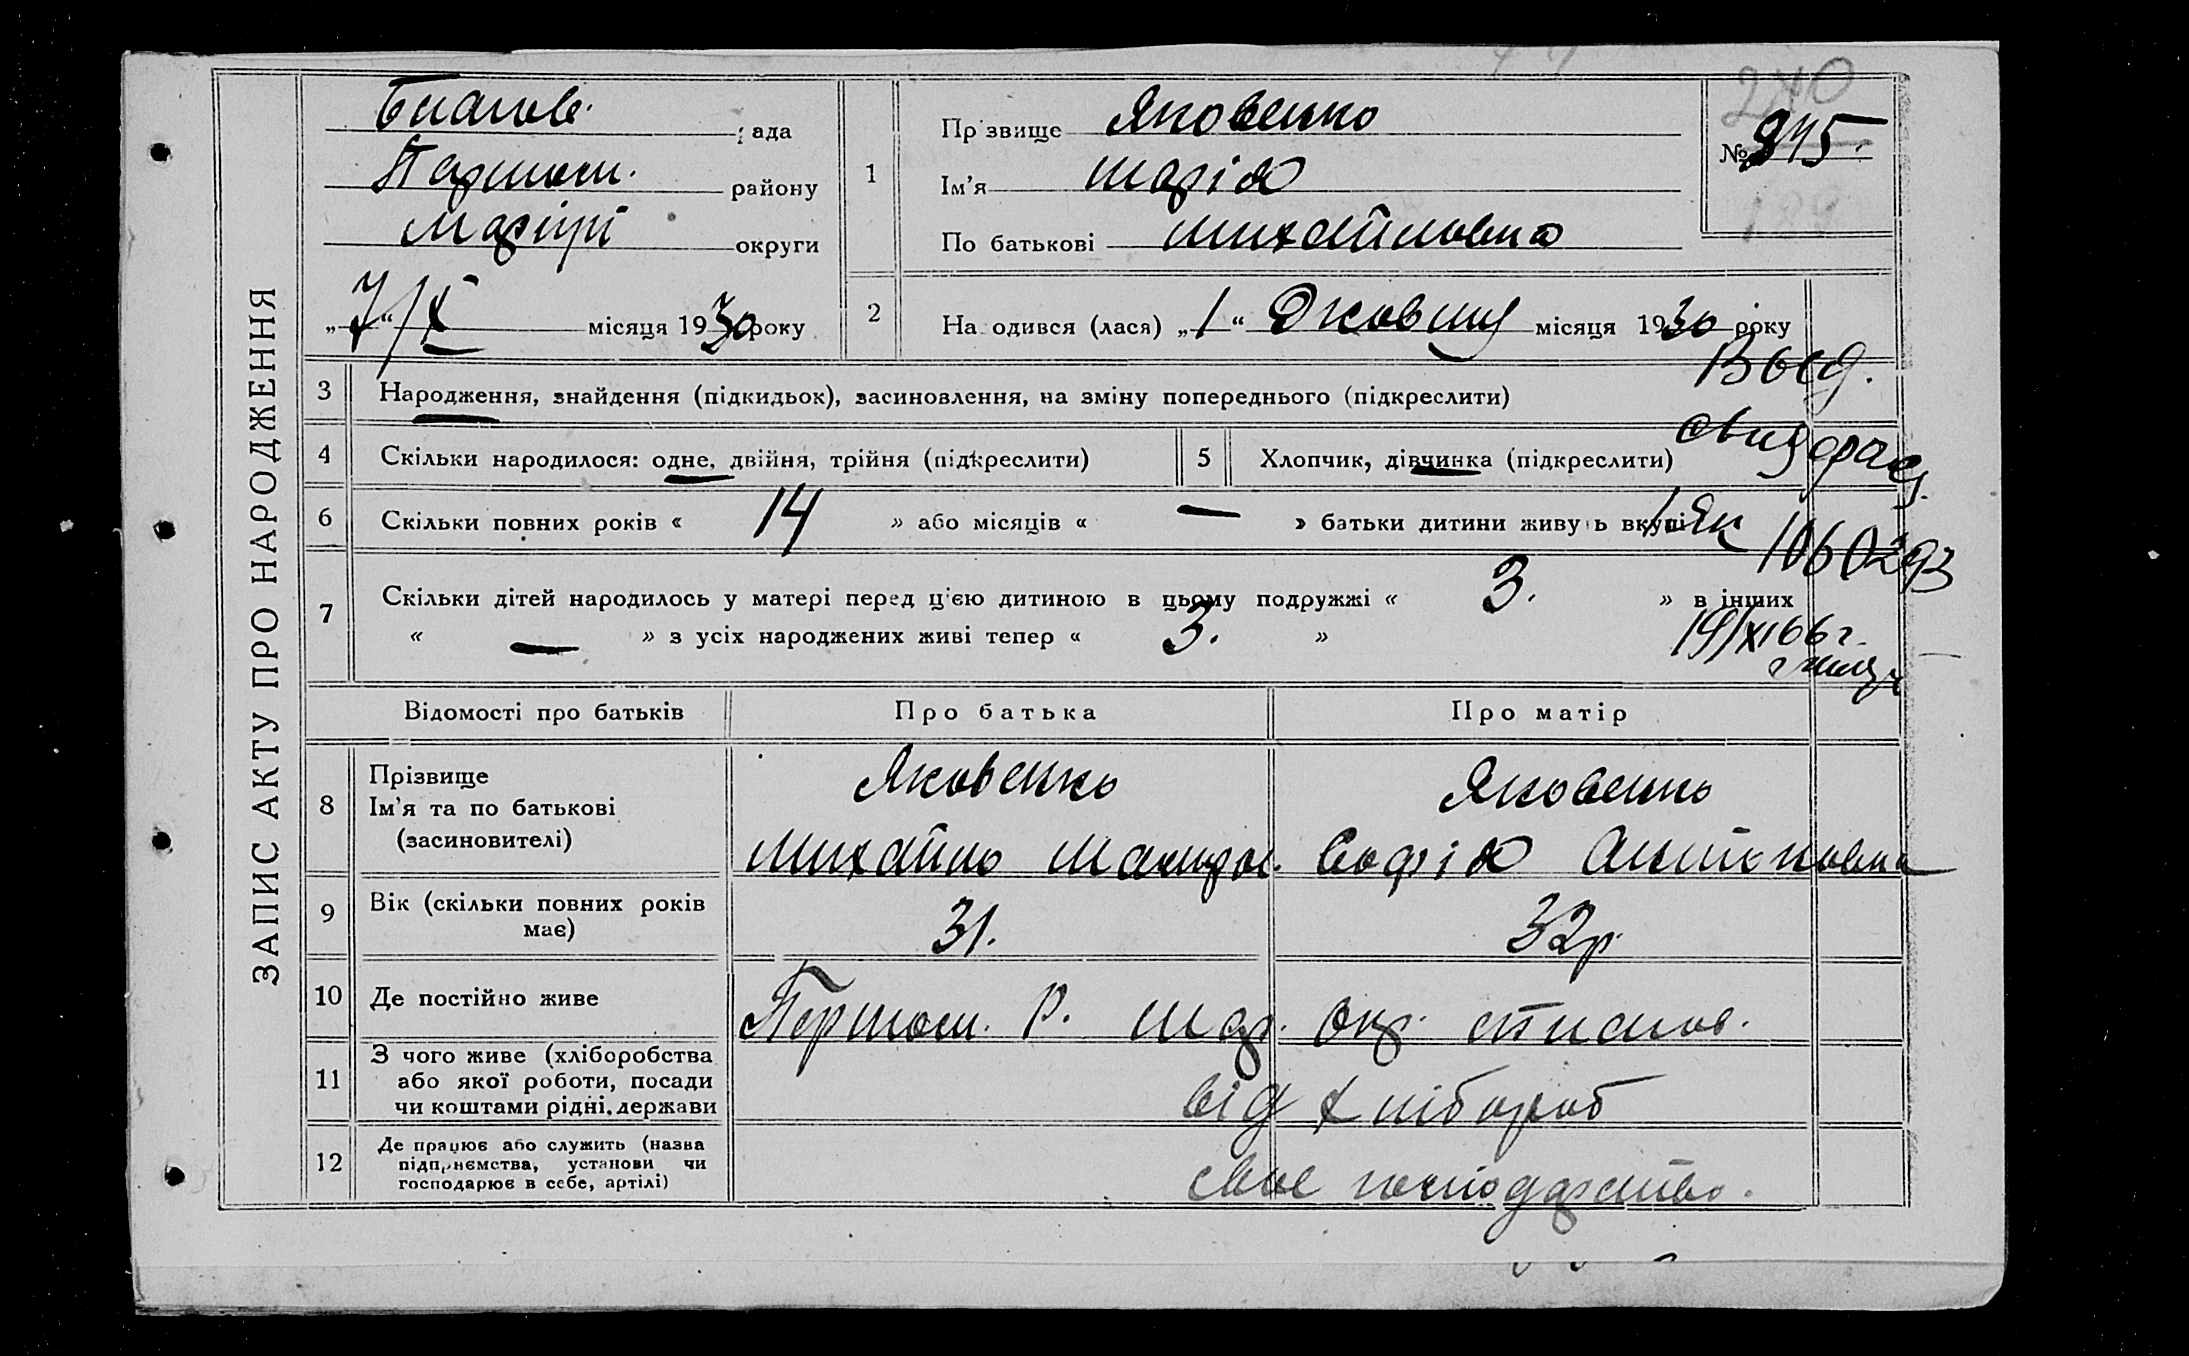 ЗАПИС АКТУ ПРО НАРОДЖЕННЯ
рада
району
округи
„7“/X місяця 1930 року
1
Прізвище Яковенко
Ім'я Марія
По батькові Михайловна
№ 245.
240
2 Народився (лася) „1“ Жовтня місяця 1930 року
3 Народження, знайдення (підкидьок), засиновлення, на зміну попереднього (підкреслити)
4 Скільки народилося: одне, двійня, трійня (підкреслити)
5 Хлопчик, дівчинка (підкреслити)
6 Скільки повних років « 14 » або місяців « — » батьки дитини живуть вкупі
7 Скільки дітей народилось у матері перед цією дитиною в цьому подружжі « 3. » в інших
« — » з усіх народжених живі тепер « 3. »
Выд.
1060293
19/XI 66 г.
Відомості про батьків
Про батька
Про матір
8 Прізвище
Ім'я та по батькові
(засиновителі)
Яковенко
Михайло
Яковенко
Софія Антоновна
9 Вік (скільки повних років
має)
31.
32р.
10 Де постійно живе
Першот. Р. Мар. Окр.
11 З чого живе (хліборобства
або якої роботи, посади
чи коштами рідні, держави
від хлібороб
12 Де працює або служить (назва
підприємства, установи чи
господарює в себе, артілі)
своє господарство.